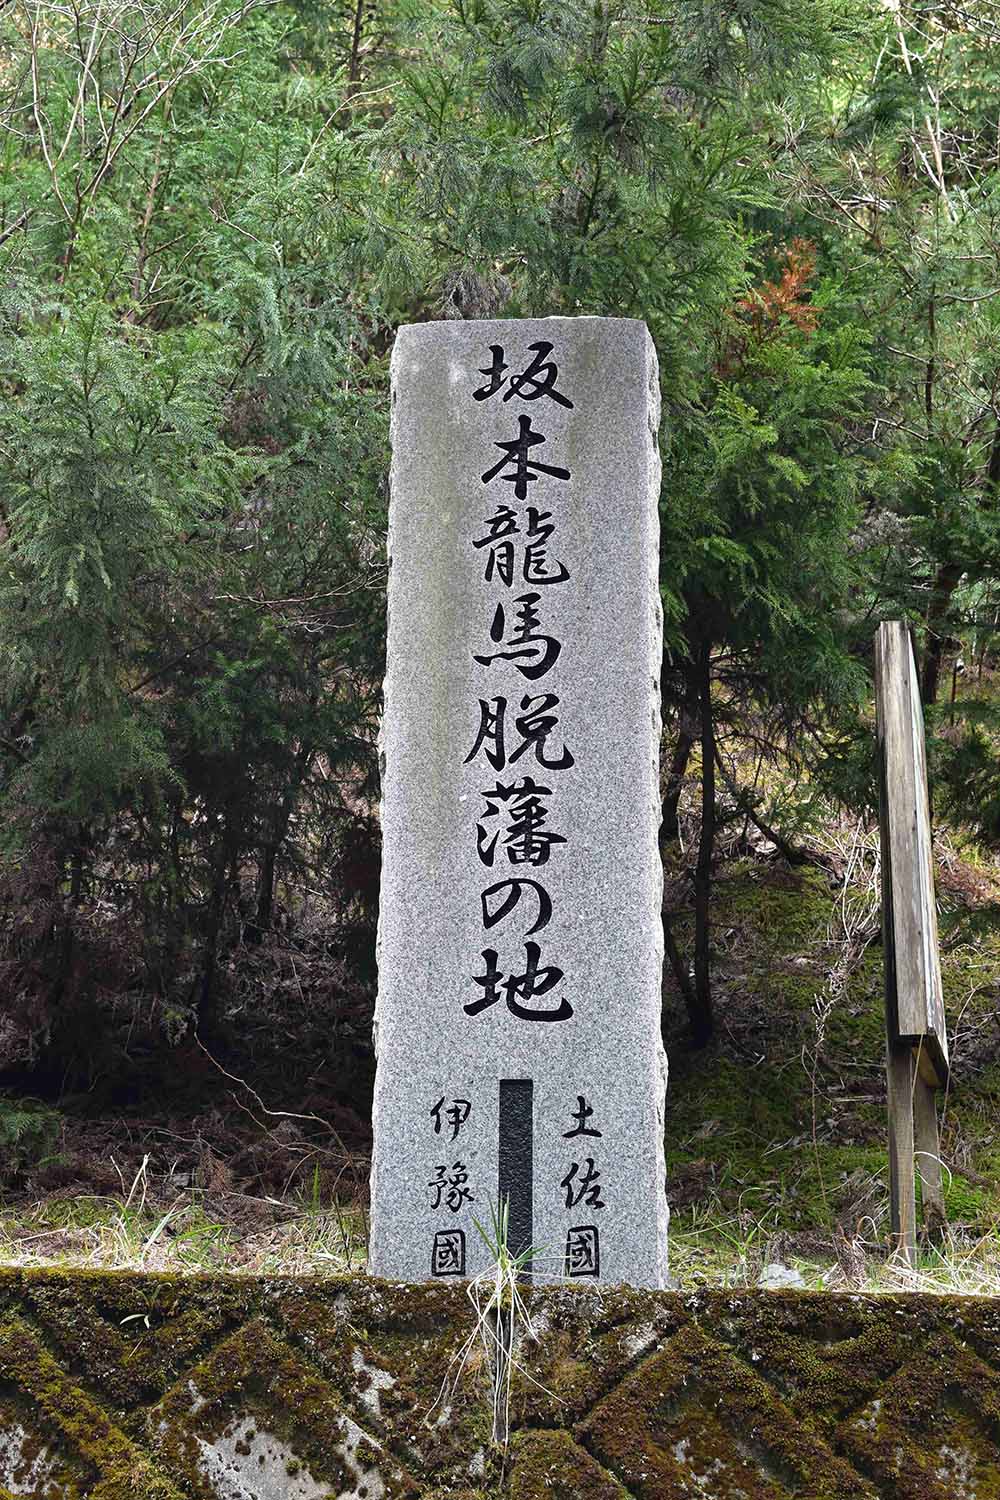 坂本龍馬脱藩の地
土佐國
伊豫國